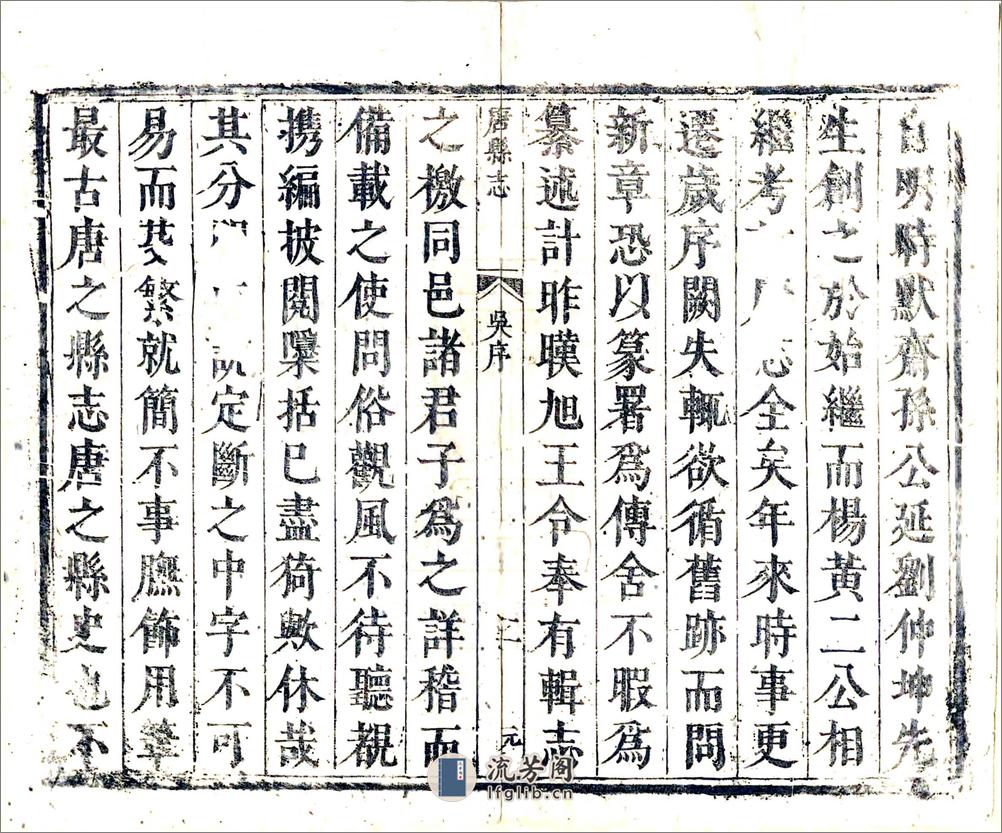 自明時默齋孫公延劉仲坤先
生創之於始繼而楊黃二公相
繼考全矣年來時事更
遷歲序闕失輒欲循舊跡而問
新章恐以篆署為傳舍不暇為
纂述計昨嘆旭王令奉有輯志
唐縣志 吳序 元
之檄同邑諸君子為之詳稽而
備載之使問俗觀風不待聽覩
攜編披閱檃括已盡猗歟休哉
其分定斷之中字不可
易而芟繁就簡不事膴飾用筆
最古唐之縣志唐之縣史也不
流芳閣
lfglib.cn